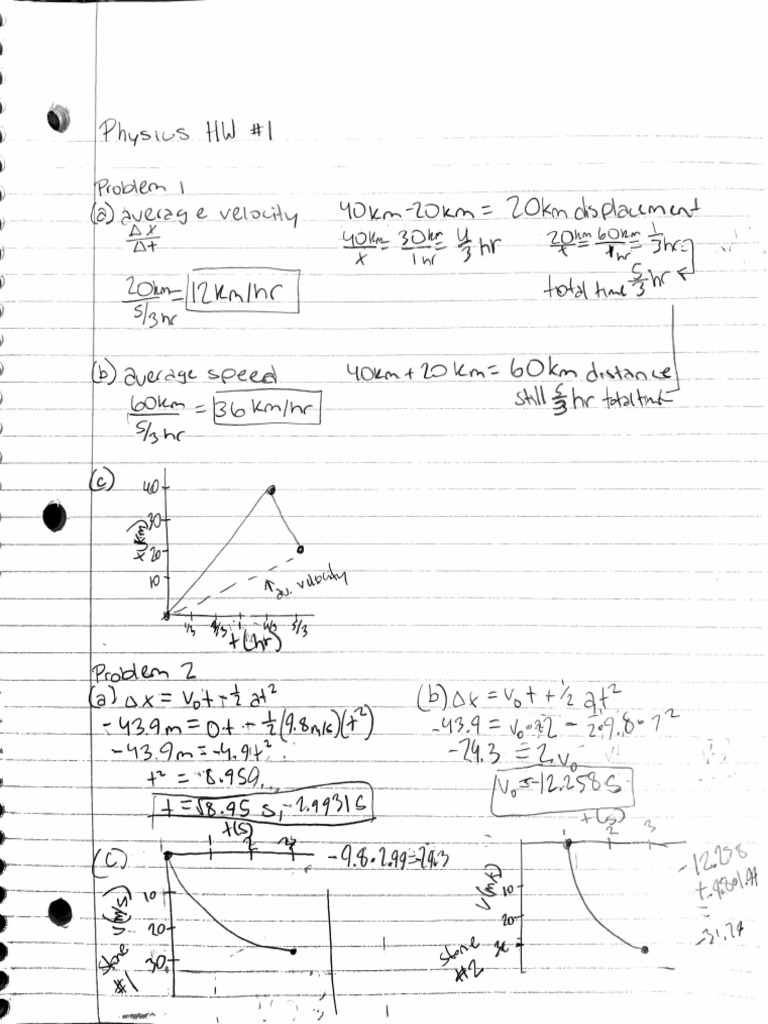 Physics HW #1
Problem 1
(a) average velocity 40km-20km = 20km displacement
Δx/Δt 40km/x = 30km/1hr = 4/3 hr 20km/x = 60km/1hr = 1/3 hr
total time 5/3 hr
20km/5/3 hr = 12km/hr
(b) average speed 40km + 20km = 60km distance
60km/5/3 hr = 36 km/hr still 5/3 hr total time
(c)
40
30
20
10
x(km)
av. velocity
1/3 2/3 1 4/3 5/3
t(hr)
Problem 2
(a) Δx = v₀t + 1/2 at²
-43.9m = 0t + 1/2(9.8m/s)(t²)
-43.9m = -4.9t²
t² = 8.959...
t = √8.95 s, -2.9931s
(b) Δx = v₀t + 1/2 at²
-43.9 = v₀·2 - 1/2·9.8·2²
-24.3 = 2v₀
v₀ = -12.258s
(C)
t(s)
1 2 3
-9.8·2.99=-29.3
10
20
30
v(m/s)
Stone #1
t(s)
1 2 3
10
20
30
Stone #2
-12.258
-31.29